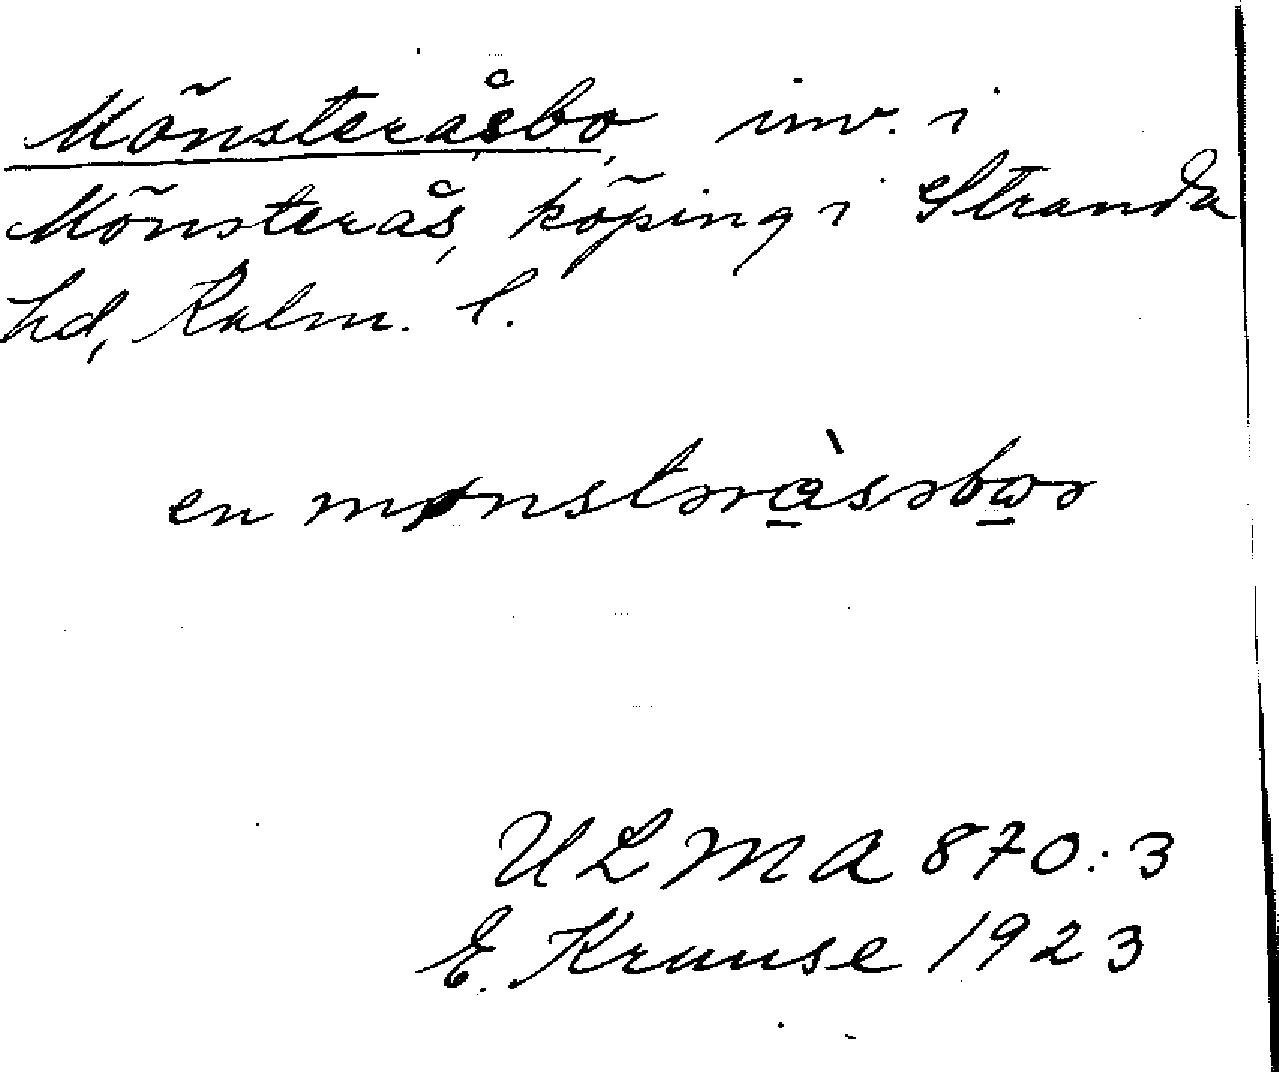 Mönsteråsbo, inv. i
Mönsterås, köping i Stranda
hd, Kalm. l.
en mønstəråsəboə
ULMA 870:3
E. Krause 1923